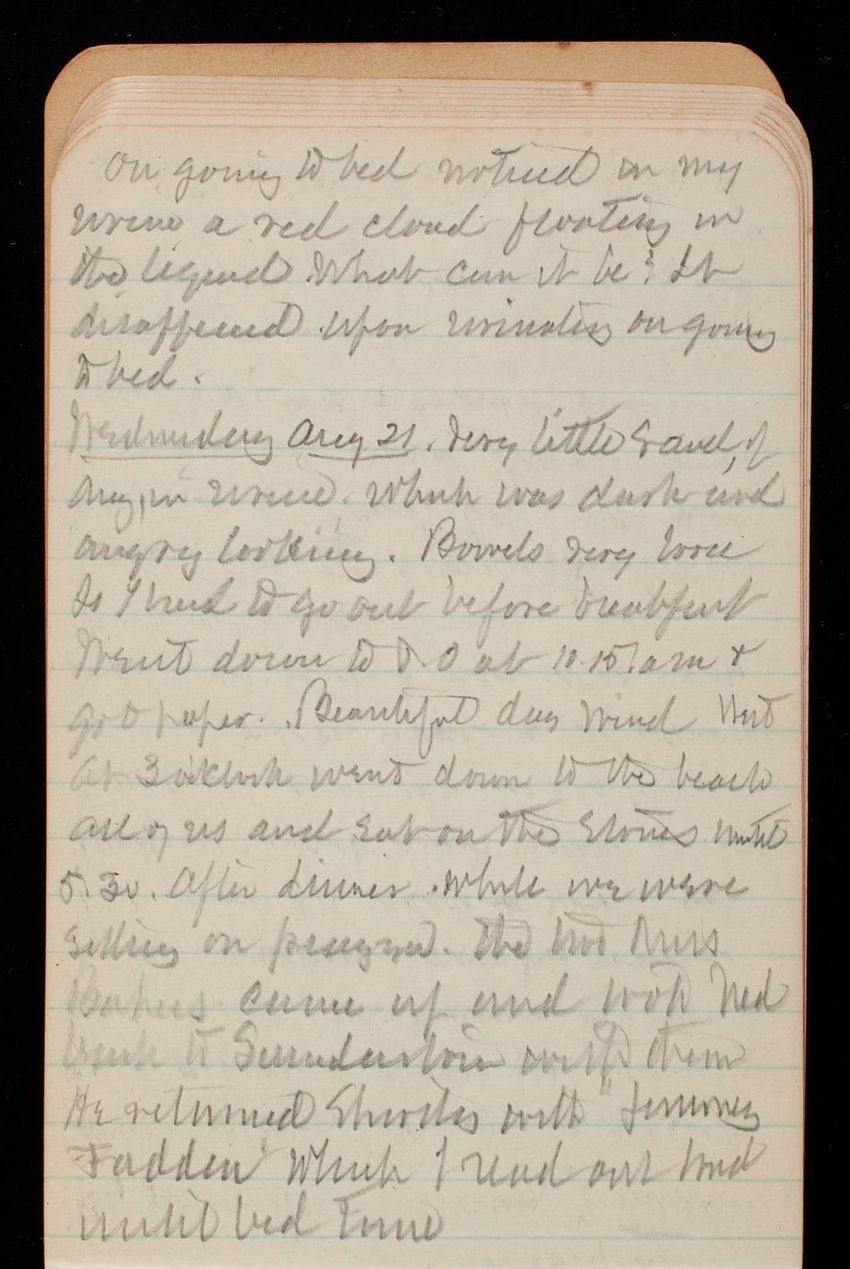 On going to bed noticed in my
urine a red cloud floating in
the liquid. What can it be? It
disappeared upon urinating on going
to bed.
Wednesday Aug 21. Very little Gravel, if
Any, in urine. Which was dark and
angry looking. Bowels very loose
So I had to go out before breakfast
Went down to P.O at 10.15 am &
got paper. Beautiful day Wind West
At 3 o'clock went down to the beach
All of us and sat on the stones until
5.30. After dinner. While we were
sitting on piazza. the two Miss
came up and took Ned
back to with them
He returned Shortly with "
Fadden" Which I read out loud
until bed time